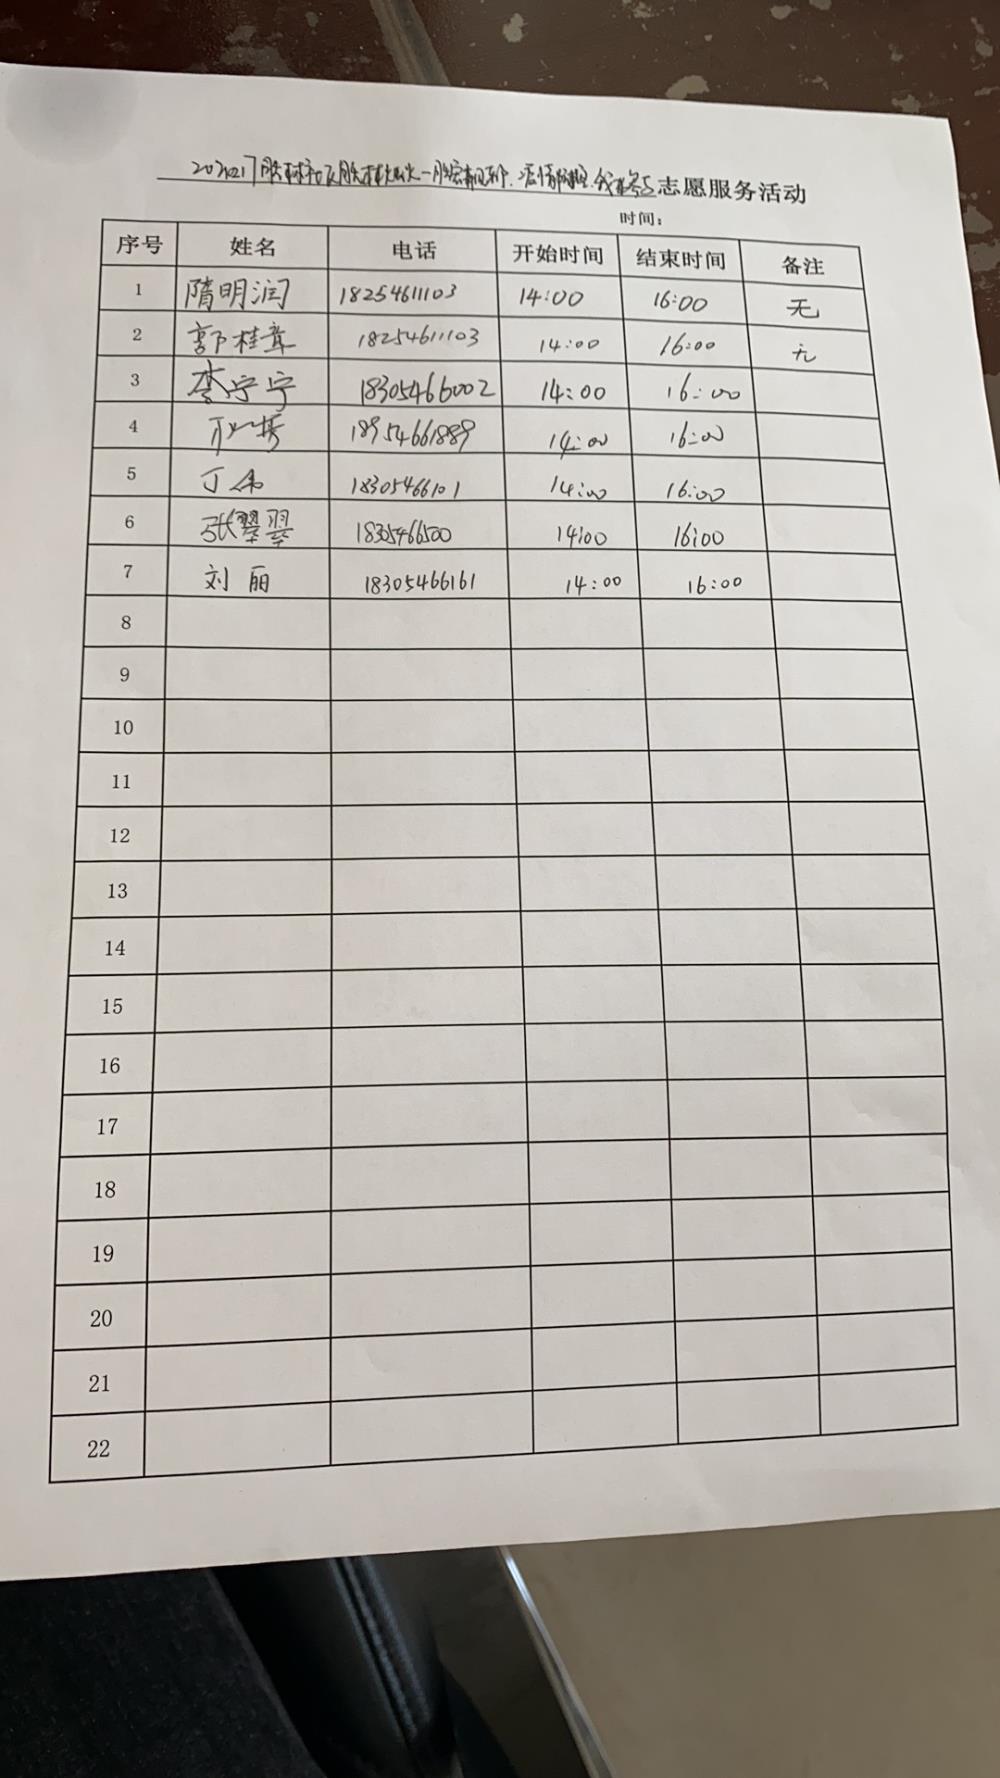 志愿服务活动
时间：
序号 姓名 电话 开始时间 结束时间 备注
1 隋明润 18254611103 14:00 16:00 无
2 郭桂章 18254611103 14:00 16:00 无
3 李宁宁 18305466002 14:00 16:00
4 18954661889 14:00 16:00
5 丁伟 18305466101 14:00 16:00
6 张翠翠 1835466500 14:00 16:00
7 刘丽 18305466161 14:00 16:00
8
9
10
11
12
13
14
15
16
17
18
19
20
21
22